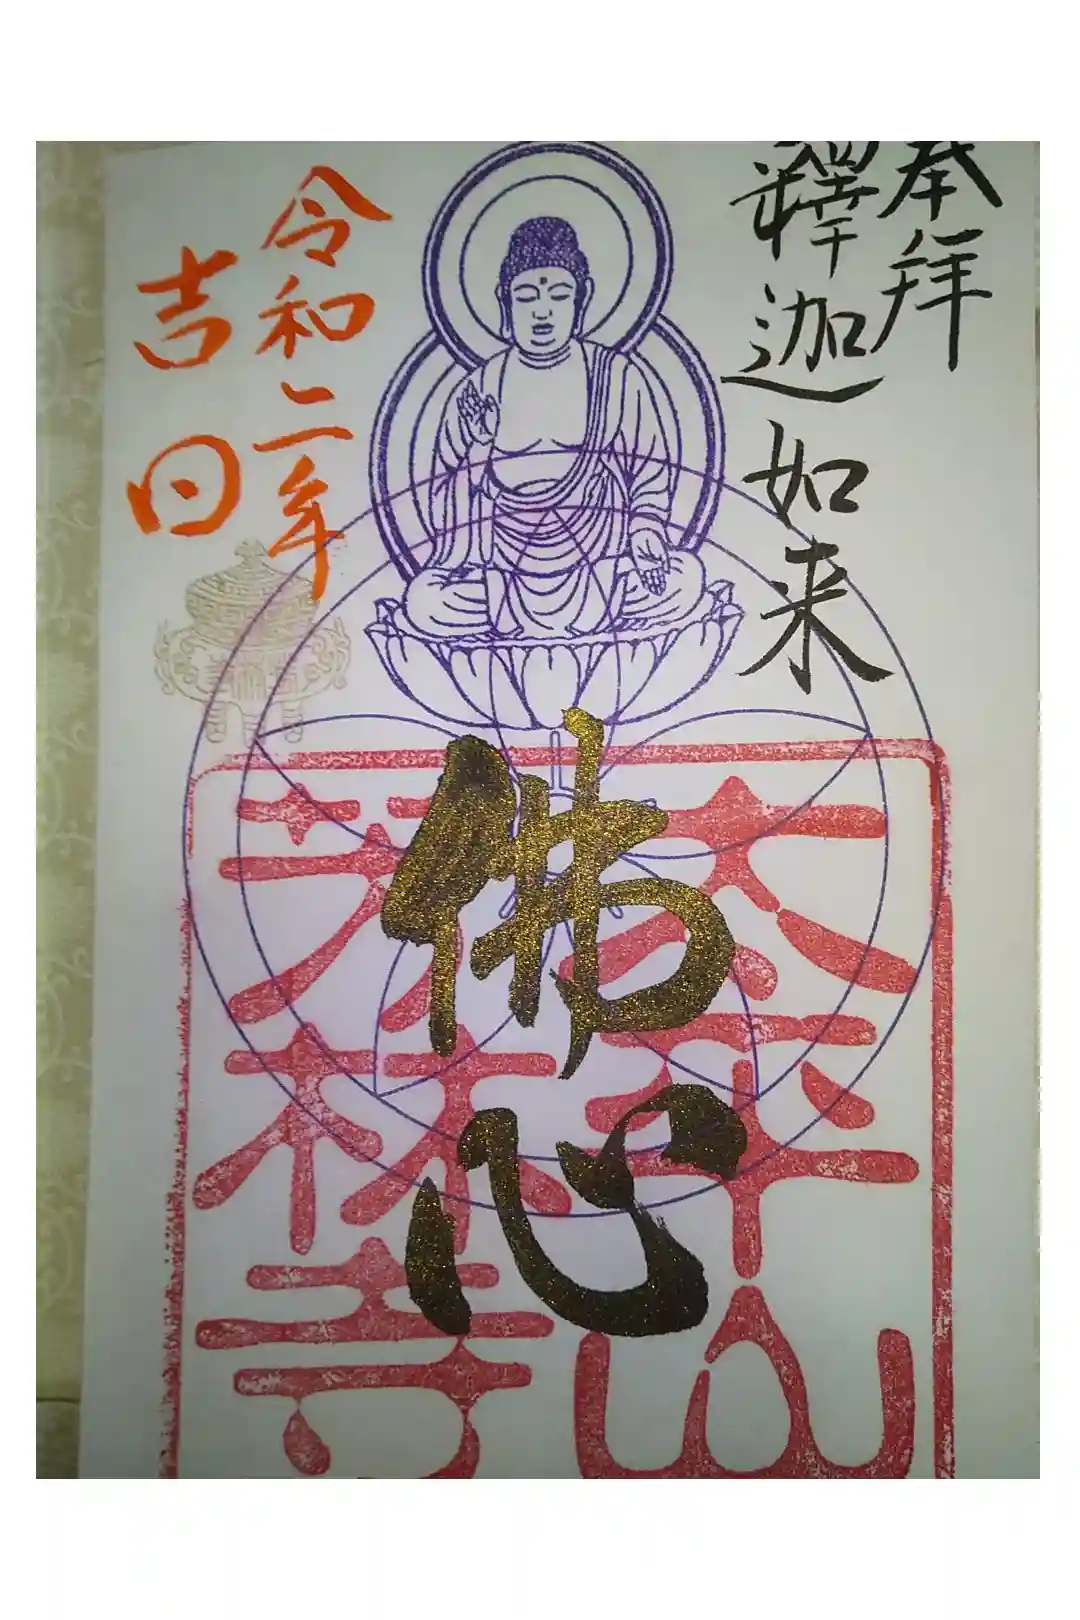 奉拝
釋迦如来
佛心
令和二年
吉日
太平山
芳林寺